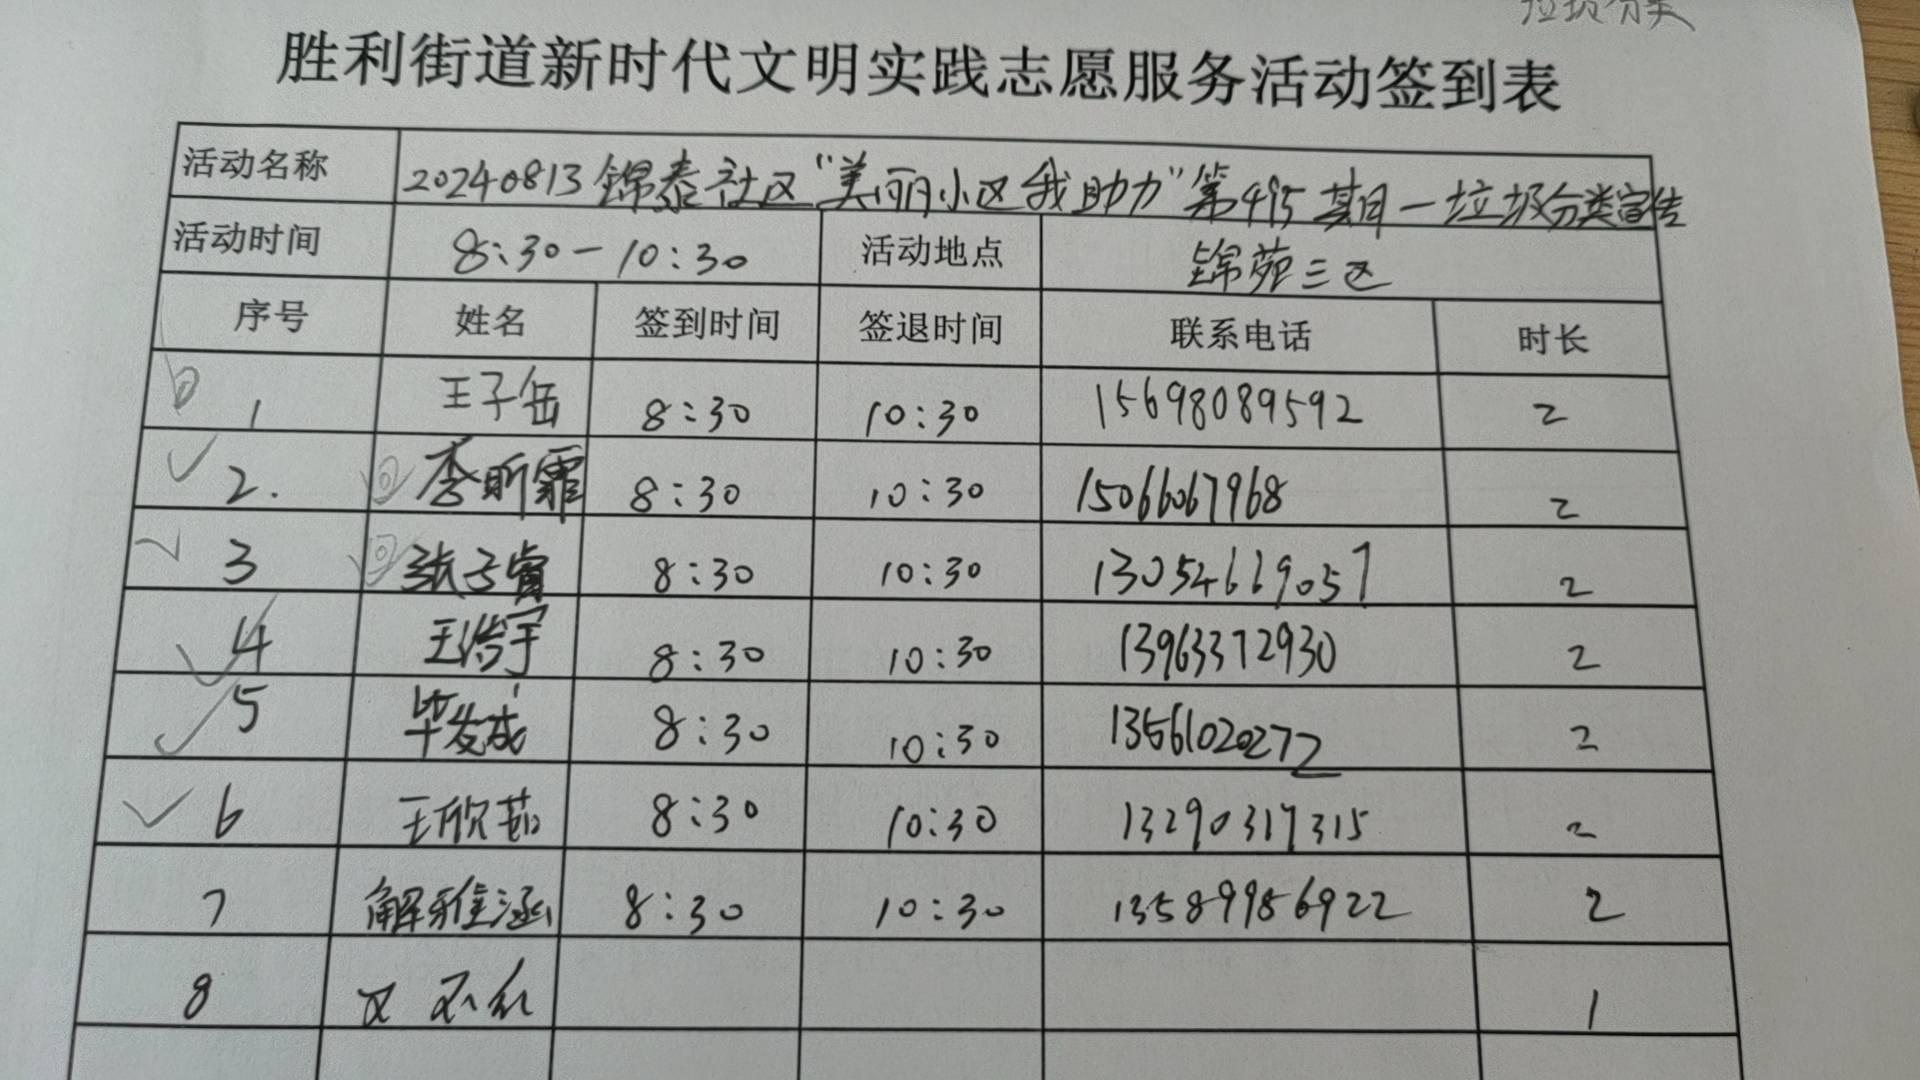 垃圾分类
胜利街道新时代文明实践志愿服务活动签到表
活动名称 20240813锦泰社区“美丽小区我助力”第495期—垃圾分类宣传
活动时间 8:30—10:30 活动地点 锦苑三区
序号 姓名 签到时间 签退时间 联系电话 时长
1 王子岳 8:30 10:30 15698089592 2
2. 李昕霏 8:30 10:30 15066067968 2
3 张子睿 8:30 10:30 13054669057 2
4 王浩宇 8:30 10:30 13963372930 2
5 毕发成 8:30 10:30 13561020272 2
6 王欣茹 8:30 10:30 13290317315 2
7 解雅涵 8:30 10:30 13589986922 2
8 1